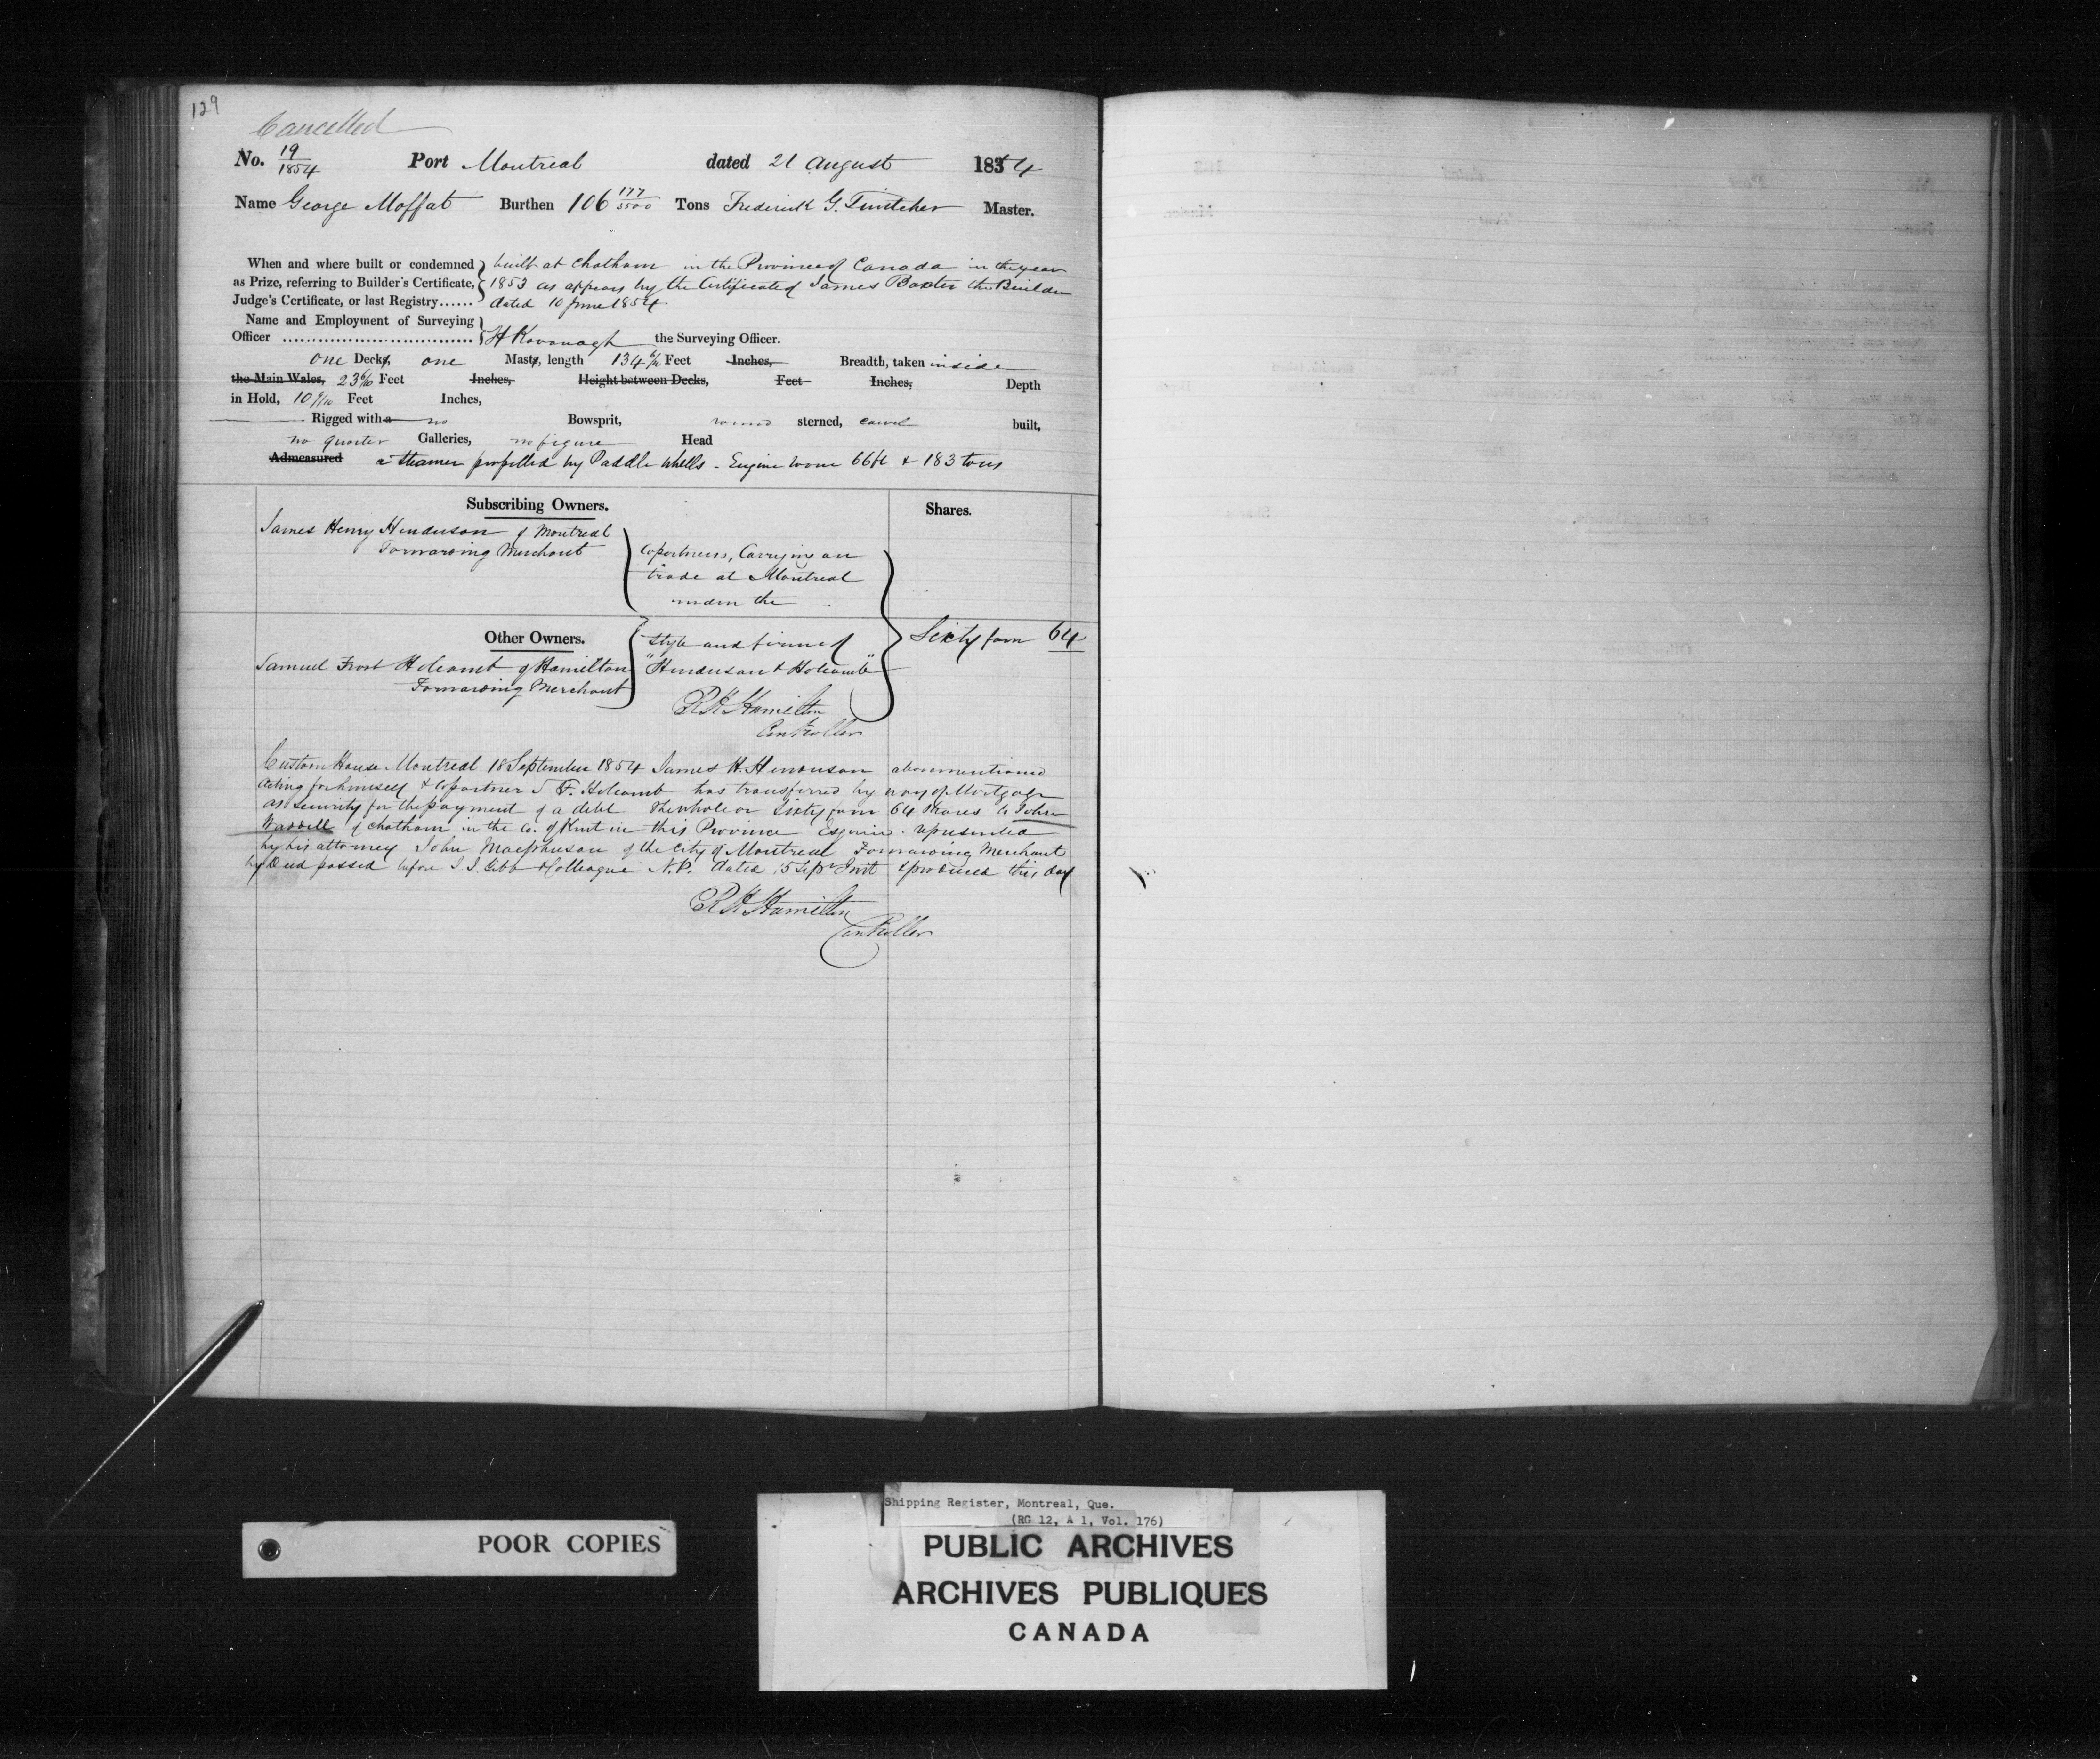 129
Cancelled
No. 19/1854 Port Montreal dated 21 August 1854
Name George Moffat Burthen 106 177/3500 Tons Frederick G. Master.
When and where built or condemned as Prize, referring to Builder's Certificate, Judge's Certificate, or last Registry......
built at Chatham in the Province of Canada in the year
1853 as appears by the Certificate of James Baxter the Builder
dated 10 June 1854
Name and Employment of Surveying
Officer ................................ H Kavanagh the Surveying Officer.
one Decks, one Masts, length 134 6/10 Feet Inches, Breadth, taken inside
the Main Wales, 23 6/10 Feet Inches, Height between Decks, Feet Inches, Depth
in Hold, 10 Feet Inches,
Rigged with a no Bowsprit, round sterned, carvel built,
no quarter Galleries, no figure Head
Admeasured a Steamer propelled by Paddle Wheels - Engine room 66ft & 183 tons
Subscribing Owners. Shares.
James Henry Henderson of Montreal
Forwarding Merchant
Copartners, Carrying on
trade at Montreal
under the
Other Owners.
Samuel Frost Holcomb of Hamilton
Forwarding Merchant
style and firm of
"Henderson & Holcomb"
Sixty four 64
R H Hamilton
Controller
Custom House Montreal 18 September 1854 James H. Henderson abovementioned
acting for himself & Copartner S F. Holcomb has transferred by way of Mortgage
as security for the payment of a debt the whole or Sixty four 64 Shares to John
Waddell of Chatham in the Co. of Kent in this Province Esquire represented
by his attorney John Macpherson of the City of Montreal Forwarding Merchant
by Deed passed before I. J. Gibb & Colleague N.P. dated 15 Sepr Inst & produced this day
R H Hamilton
Controller
POOR COPIES
Shipping Register, Montreal, Que.
(RG 12, A 1, Vol. 176)
PUBLIC ARCHIVES
ARCHIVES PUBLIQUES
CANADA